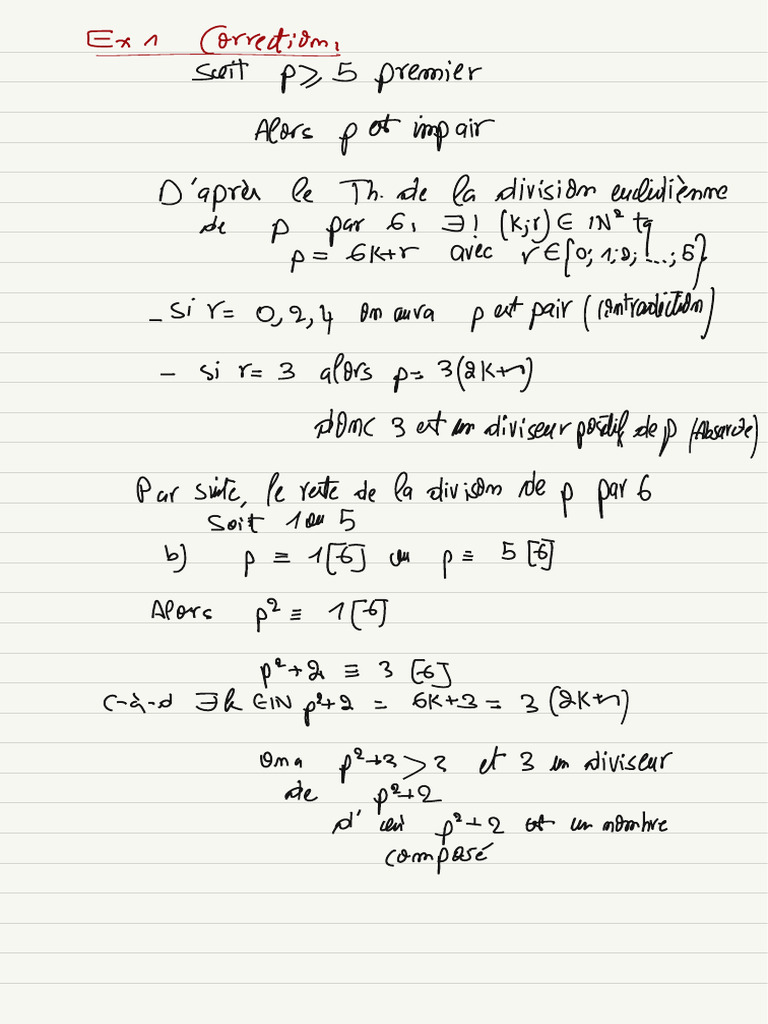 Ex 1 Correction,
Soit p ≥ 5 premier
Alors p est impair
D'après le Th. de la division euclidienne
de p par 6, ∃! (k;r) ∈ IN² tq
p = 6k+r avec r ∈ {0; 1; 2; ...; 5}
- si r = 0, 2, 4 on aura p est pair (contradiction)
- si r = 3 alors p = 3(2k+1)
donc 3 est un diviseur positif de p (Absurde)
Par suite, le reste de la division de p par 6
soit 1 ou 5
b) p ≡ 1[6] ou p ≡ 5 [6]
Alors p² ≡ 1[6]
p²+2 ≡ 3 [6]
c-à-d ∃k ∈ IN p²+2 = 6k+3 = 3(2k+1)
on a p²+3 > 3 et 3 un diviseur
de p²+2
d'où p²+2 est un nombre
composé